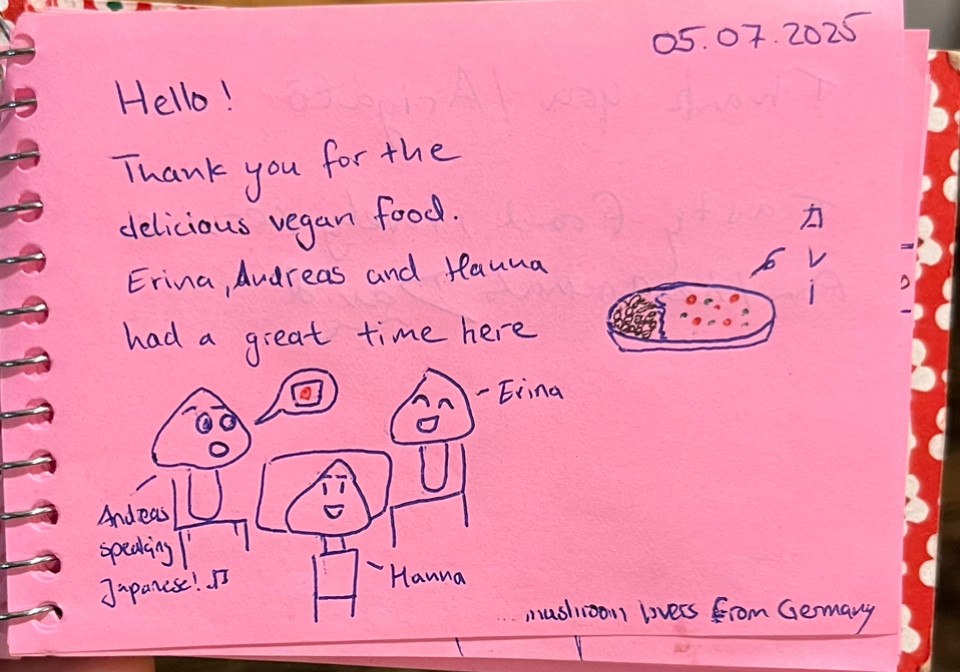 05.07.2025
Hello!
Thank you for the
delicious vegan food.
Erina, Andreas and Hanna
had a great time here
カ
レ
ー
Erina
Andreas
speaking
Japanese! ♫
Hanna
... mushroom lovers from Germany